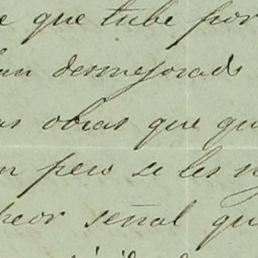 e que tube por
tan desmejorado
as obras que qu
n pero se les n
peor señal qu